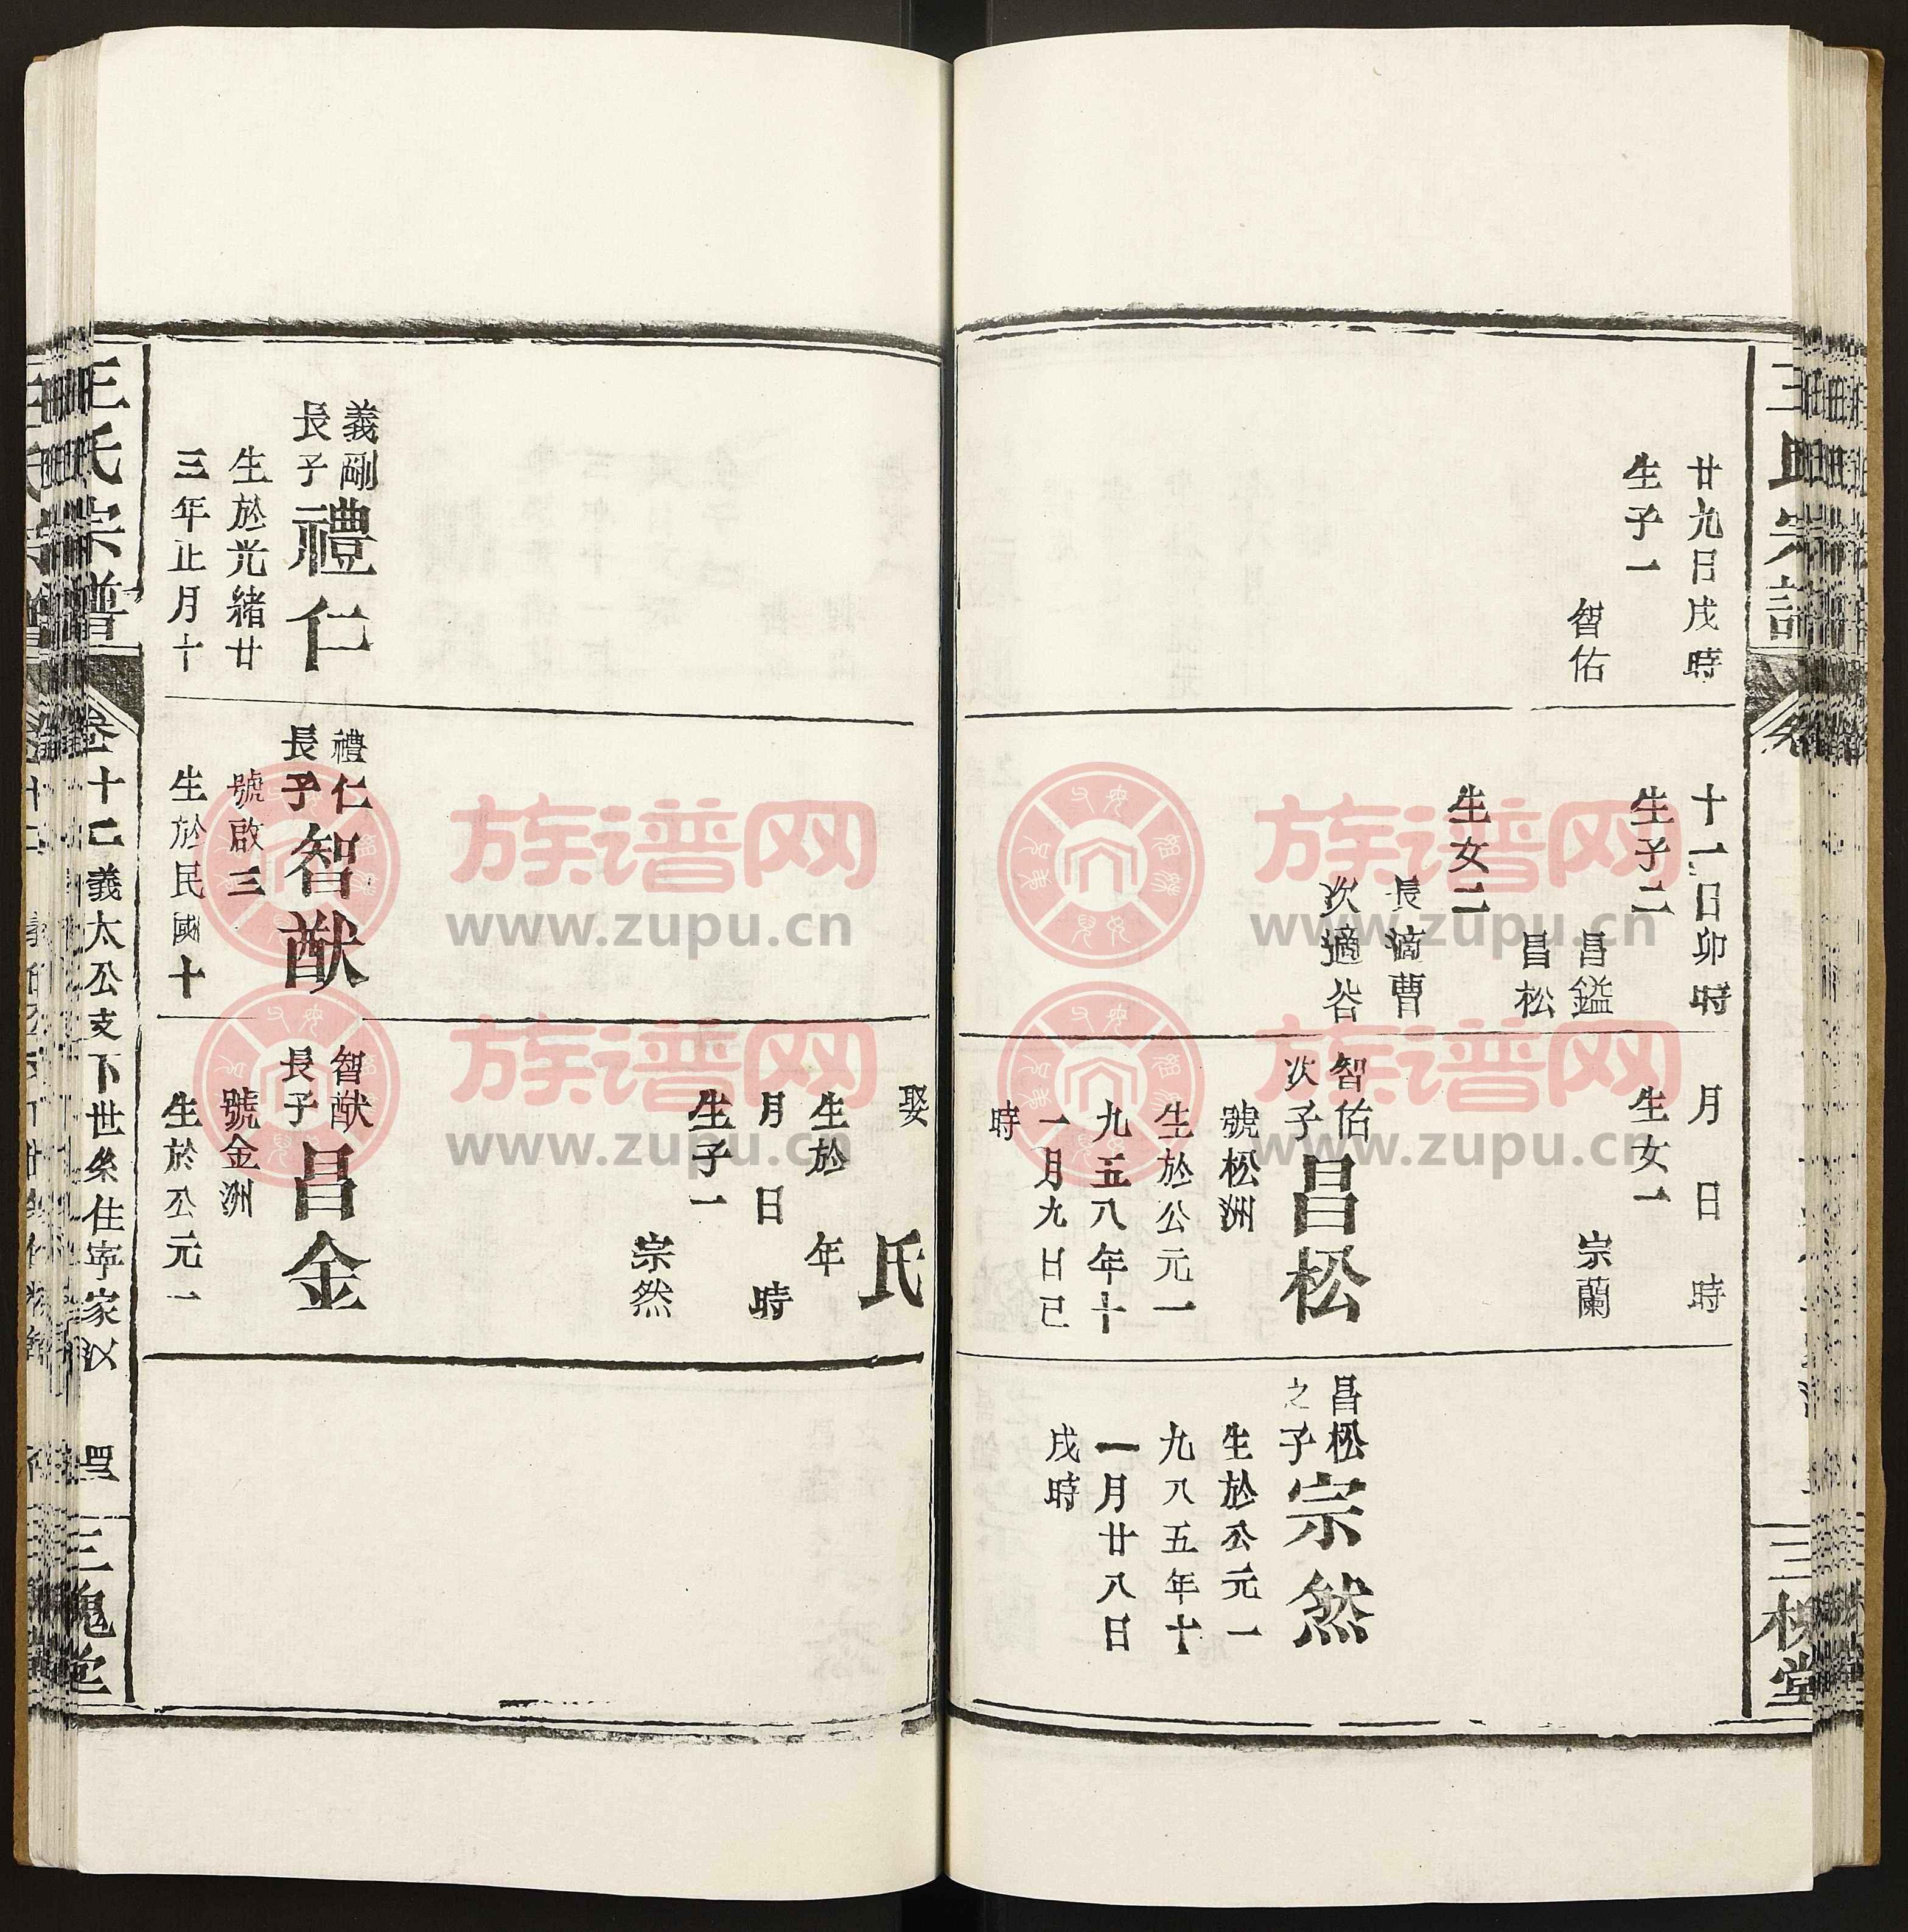 王氏宗譜
三槐堂
廿九日戌時
生子一
智佑
十一日卯時
生子二
昌鎰
昌松
生女二
長適曹
次適谷
月 日 時
生女一
宗蘭
智佑
次子
昌松
號松洲
生於公元一
九五八年十
一月九日巳
時
昌松
之子
宗然
生於公元一
九八五年十
一月廿八日
戌時
娶 氏
生於 年
月 日 時
生子一
宗然
義剛
長子
禮仁
生於光緒廿
三年正月十
禮仁
長子
智猷
號啟三
生於民國十
智猷
長子
昌金
號金洲
生於公元一
王氏宗譜
卷十二義太公支下世系住寧家以
三槐堂
族谱网
www.zupu.cn
族谱网
www.zupu.cn
族谱网
www.zupu.cn
族谱网
www.zupu.cn